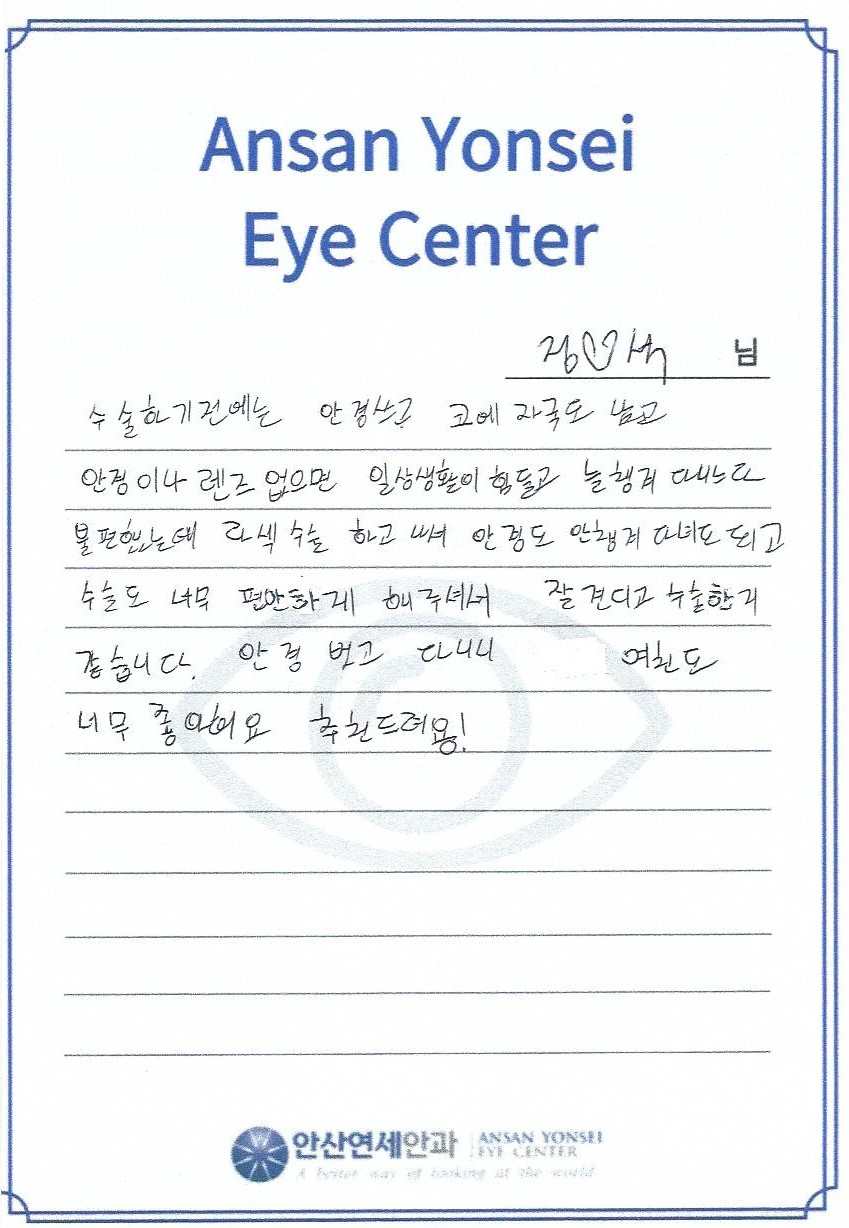 Ansan Yonsei
Eye Center
정♡석 님
수술하기전에는 안경쓰고 코에 자국도 남고
안경이나 렌즈 없으면 일상생활이 힘들고 늘 챙겨 다니느라
불편했는데 라섹 수술 하고 나서 안경도 안챙겨 다녀도 되고
수술도 너무 편안하게 해주셔서 잘 견디고 수술한거
같습니다. 안경 벗고 다니니 여친도
너무 좋아해요 추천드려용!
안산연세안과 ANSAN YONSEI
EYE CENTER
A better way of looking at the world